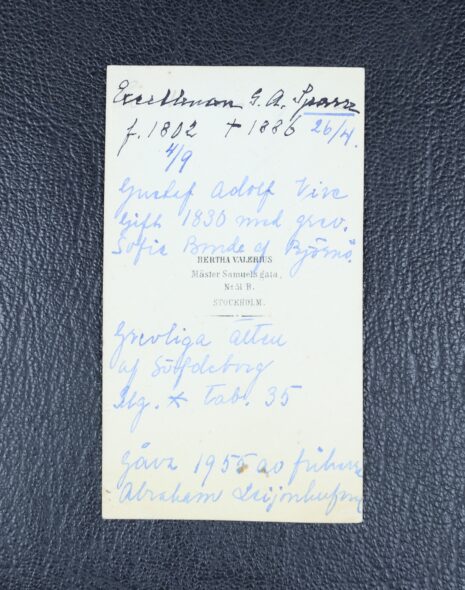 Excellensen G. A. Sparre
f. 1802 + 1886 26/4.
4/9
Gustaf Adolf
Gift 1830 med grev.
Sofie Bonde af Björnö.
BERTHA VALERIUS
Mäster Samuels gata,
N:o 51 B.
STOCKHOLM.
Grevliga ätten
af Söfdeborg
Elg. * tab. 35
Gåva 1955 av friherre
Abraham Leijonhufvud